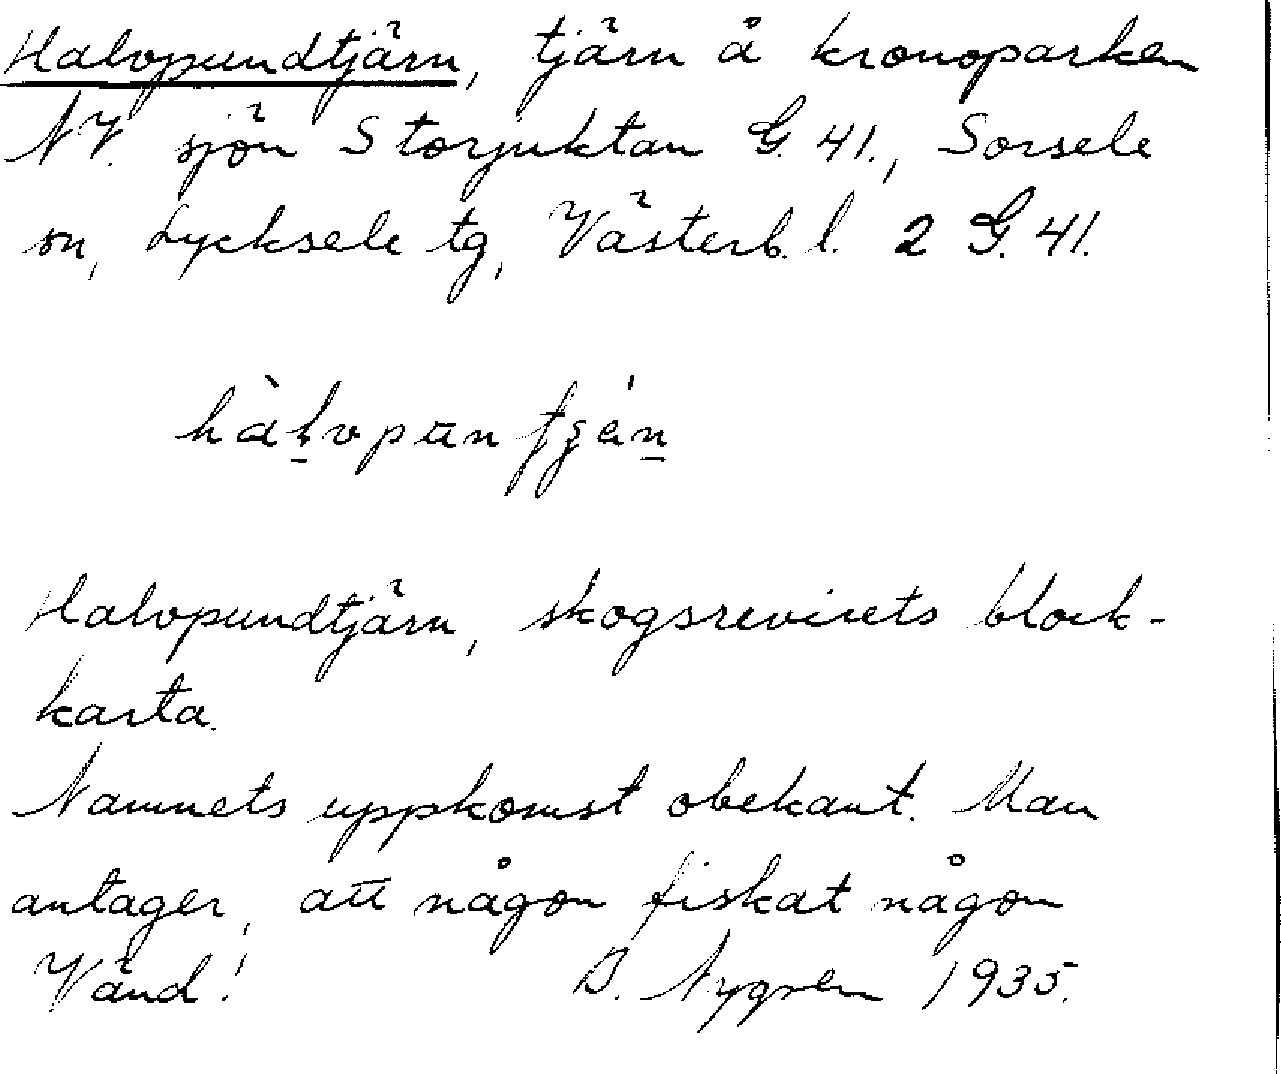 Halvpundtjärn, tjärn å kronoparken
NV. sjön Storjuktan G. 41., Sorsele
sn, Lycksele tg, Västerb. l. 2 G. 41.
Halvpundtjärn, skogsrevirets block-
karta.
Namnets uppkomst obekant. Man
antager, att någon fiskat någon
Vänd! B. Nygren 1935.